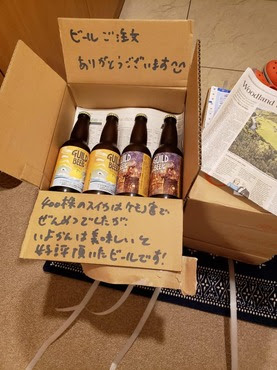 ビールご注文
ありがとうございます
GUILD
BEER
GUILD
BEER
GUILD
BEER
GUILD
BEER
Woodland
400株のスイカはケモノ害で
ぜんめつでしたが、
いよかんは美味しいと
好評頂いたビールです!